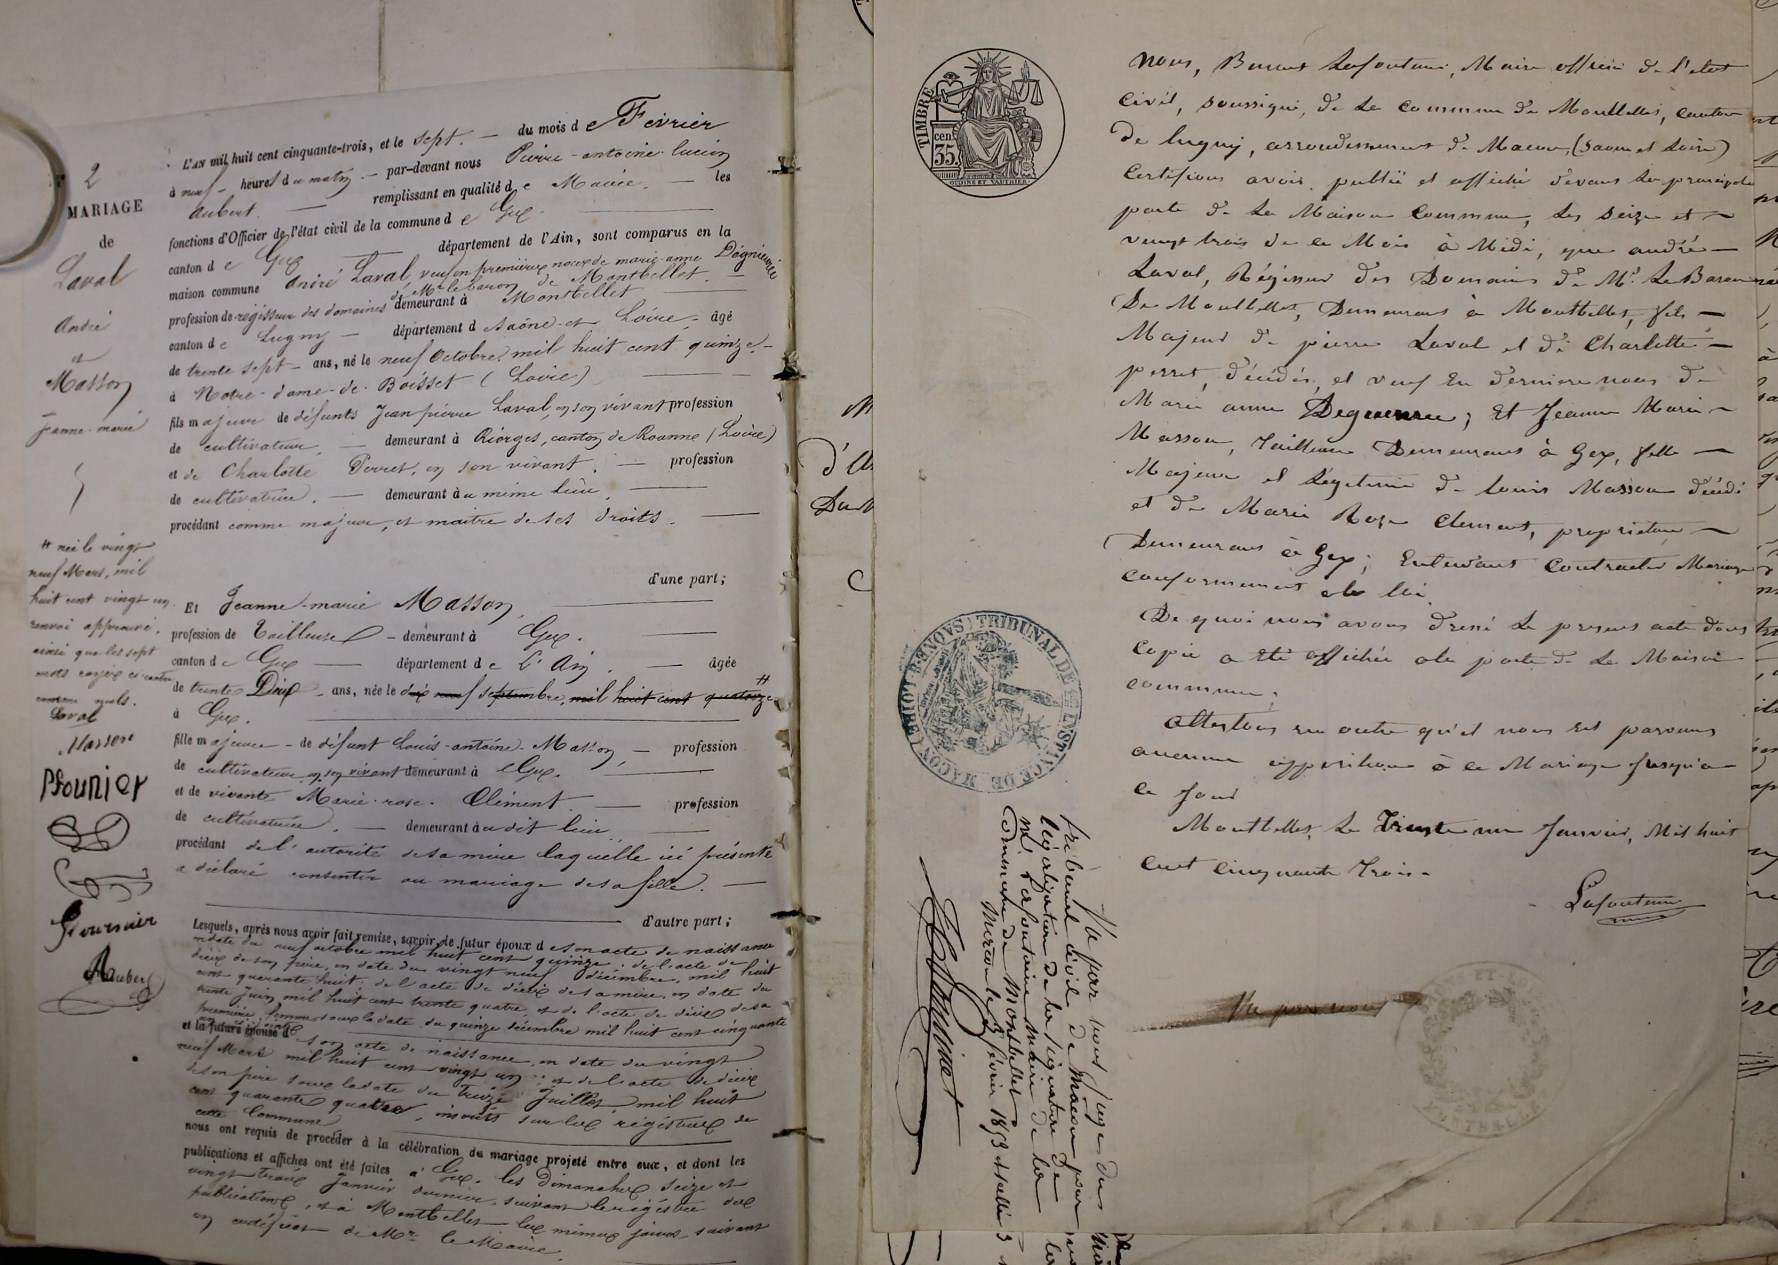 2
MARIAGE
de
Laval
André
et
Masson
Jeanne-marie
L'AN mil huit cent cinquante-trois, et le sept. du mois de Février
à neuf heures du matin par-devant nous Pierre-antoine-lucien
Aubert remplissant en qualité de Maire les
fonctions d'Officier de l'état civil de la commune de Gex
canton de Gex département de l'Ain, sont comparus en la
maison commune André Laval, veuf en premières noces de marie-anne Dégueurée
profession de régisseur des domaines de Mr le baron de Montbellet demeurant à Montbellet
canton de Lugny département d Saône-et-Loire âgé
de trente sept ans, né le neuf Octobre mil huit cent quinze
à Notre-dame-de-Boisset (Loire)
fils majeur de défunts Jean pierre Laval, en son vivant profession
de cultivateur, demeurant à Riorges, canton de Roanne (Loire)
et de Charlotte Perret, en son vivant profession
de cultivatrice. demeurant au même lieu,
procédant comme majeur, et maître de ses droits.
d'une part;
# née le vingt
neuf Mars, mil
huit cent vingt un
renvoi approuvé,
ainsi que les sept
mots rayés
nuls.
Laval
Masson
Et Jeanne-marie Masson,
profession de Tailleuse demeurant à Gex.
canton de Gex département de L'Ain. âgée
de trente Deux ans, née le dix neuf septembre mil huit cent quatorze #
à Gex.
fille majeure de défunt Louis-antoine-Masson, profession
de cultivateur en son vivant demeurant à Gex.
et de vivante Marie-rose-Clément profession
de cultivatrice. demeurant audit lieu
procédant de l'autorité de sa mère laquelle ici présente
a déclaré consentir au mariage de sa fille.
d'autre part;
Fournier
Aubert
Lesquels, après nous avoir fait remise, savoir, le futur époux de son acte de naissance
en date du neuf octobre mil huit cent quinze, de l'acte de
décès de son père, en date du vingt neuf décembre, mil huit
cent quarante huit, de l'acte de décès de sa mère, en date du
trente Juin, mil huit cent trente quatre, et de l'acte de décès de sa
première femme sous la date du quinze décembre mil huit cent cinquante
et la future épouse d son acte de naissance, en date du vingt
neuf Mars mil huit cent vingt un; et de l'acte de décès
de son père sous la date du treize Juillet mil huit
cent quarante quatre, inscrits sur les régistres de
cette Commune
nous ont requis de procéder à la célébration du mariage projeté entre eux, et dont les
publications et affiches ont été faites à Gex. les dimanches seize et
vingt trois Janvier dernier, suivant le régistre des
publications, et à Montbellet les mêmes jours suivant
un certificat de Mr. le Maire.
TIMBRE
35 cen
Nous, Lafontaine, Maire officier de l'etat
civil, soussigné, de la commune de Montbellet, canton
de lugny, arrondissement de Macon, (Saone et Loire)
Certifions avoir publié et affiché devant la principale
porte de la Maison Commune, les seize et
vingt trois de ce Mois à Midi, que andré
Laval, Régisseur des Domaines de Mr. Le Baron
De Montbellet, Demeurant à Montbellet, fils
Majeur de pierre Laval et de Charlotte
perret, décédés, et veuf en derniere noces de
Marie anne Degueurée; Et Jeanne Marie
Masson, Tailleuse Demeurant à Gex, fille
Majeure et légitime de louis Masson décédé
et de Marie Rose Clement, proprietaire
Demeurant à Gex; Entendant Contracter Mariage
conformement a la loi.
De quoi nous avons dressé le present acte dont
Copie a été affichée a la porte de la Maison
commune;
Attestons en outre qu'il nous est parvenu
aucune opposition à ce Mariage jusqu'à
ce jour
Montbellet, le Trente un Janvier, Mil huit
cent cinquante Trois.
Lafontaine
Vu par nous
TRIBUNAL DE 1re INSTANCE DE MACON
Vu par nous Juge du
tribunal civil de Macon pour
légalisation de la signature de
Mr. Lafontaine Maire de la
commune de Montbellet
Macon le 3 février 1853